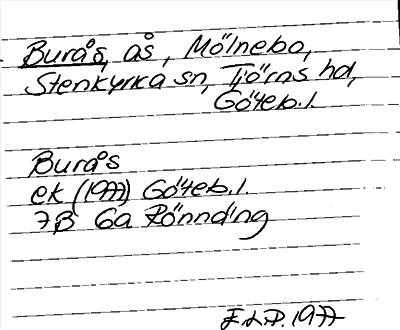 Burås, ås, Mölnebo,
Stenkyrka sn, Tjörns hd,
Göteb. l.
Burås
ek (1977) Göteb. l.
7B 6a Rönnäng
1977